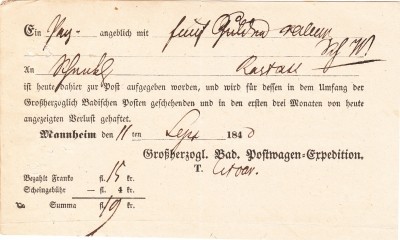 Ein Pay- angeblich mit fünf Gulden
An Rastatt
ist heute dahier zur Post aufgegeben worden, und wird für dessen in dem Umfang der
Großherzoglich Badischen Posten geschehenden und in den ersten drei Monaten von heute
angezeigten Verlust gehaftet.
Mannheim den 11ten Sept 184
Großherzogl. Bad. Postwagen-Expedition.
T.
Bezahlt Franko fl. 15 kr.
Scheingebühr — fl. 4 kr.
Summa fl. 19 kr.